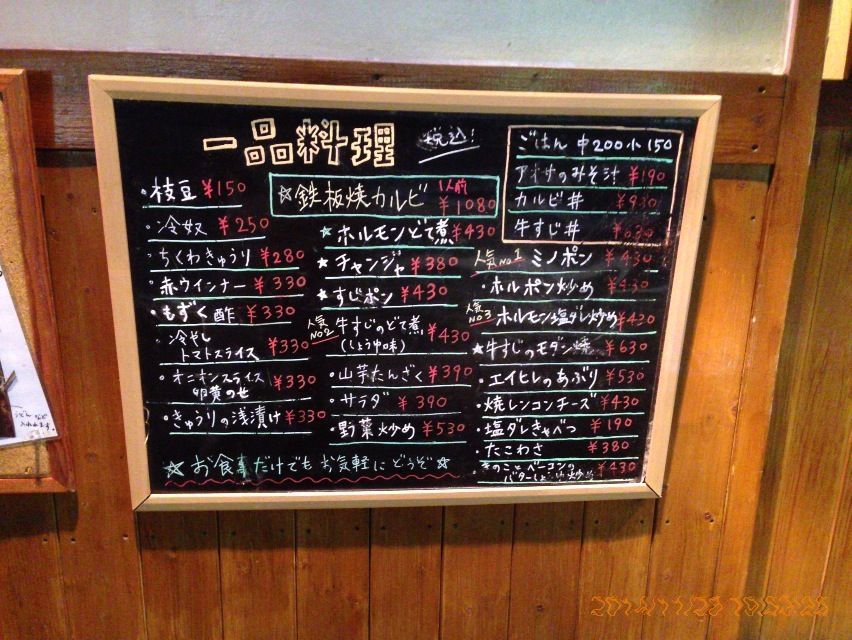 一品料理 税込!
・枝豆 ¥150
・冷奴 ¥250
・ちくわきゅうり ¥280
・赤ウインナー ¥330
・もずく酢 ¥330
・冷やし
トマトスライス ¥330
・オニオンスライス
卵黄のせ ¥330
・きゅうりの浅漬け ¥330
☆鉄板焼カルビ 1人前 ¥1080
☆ホルモンどて煮 ¥430
★チャンジャ ¥380
★すじポン ¥430
人気No2 牛すじのどて煮
(しょうゆ味) ¥430
・山芋たんざく ¥390
・サラダ ¥390
・野菜炒め ¥530
ごはん 中200 小150
アオサのみそ汁 ¥190
カルビ丼 ¥930
牛すじ丼 ¥630
人気No1 ミノポン ¥430
・ホルポン炒め ¥430
人気No3 ホルモン塩ダレ炒め ¥430
★牛すじのモダン焼 ¥630
・エイヒレのあぶり ¥530
・焼レンコンチーズ ¥430
・塩ダレきゃべつ ¥190
・たこわさ ¥380
きのことベーコンの
バターしょうゆ炒め ¥430
☆お食事だけでもお気軽にどうぞ☆